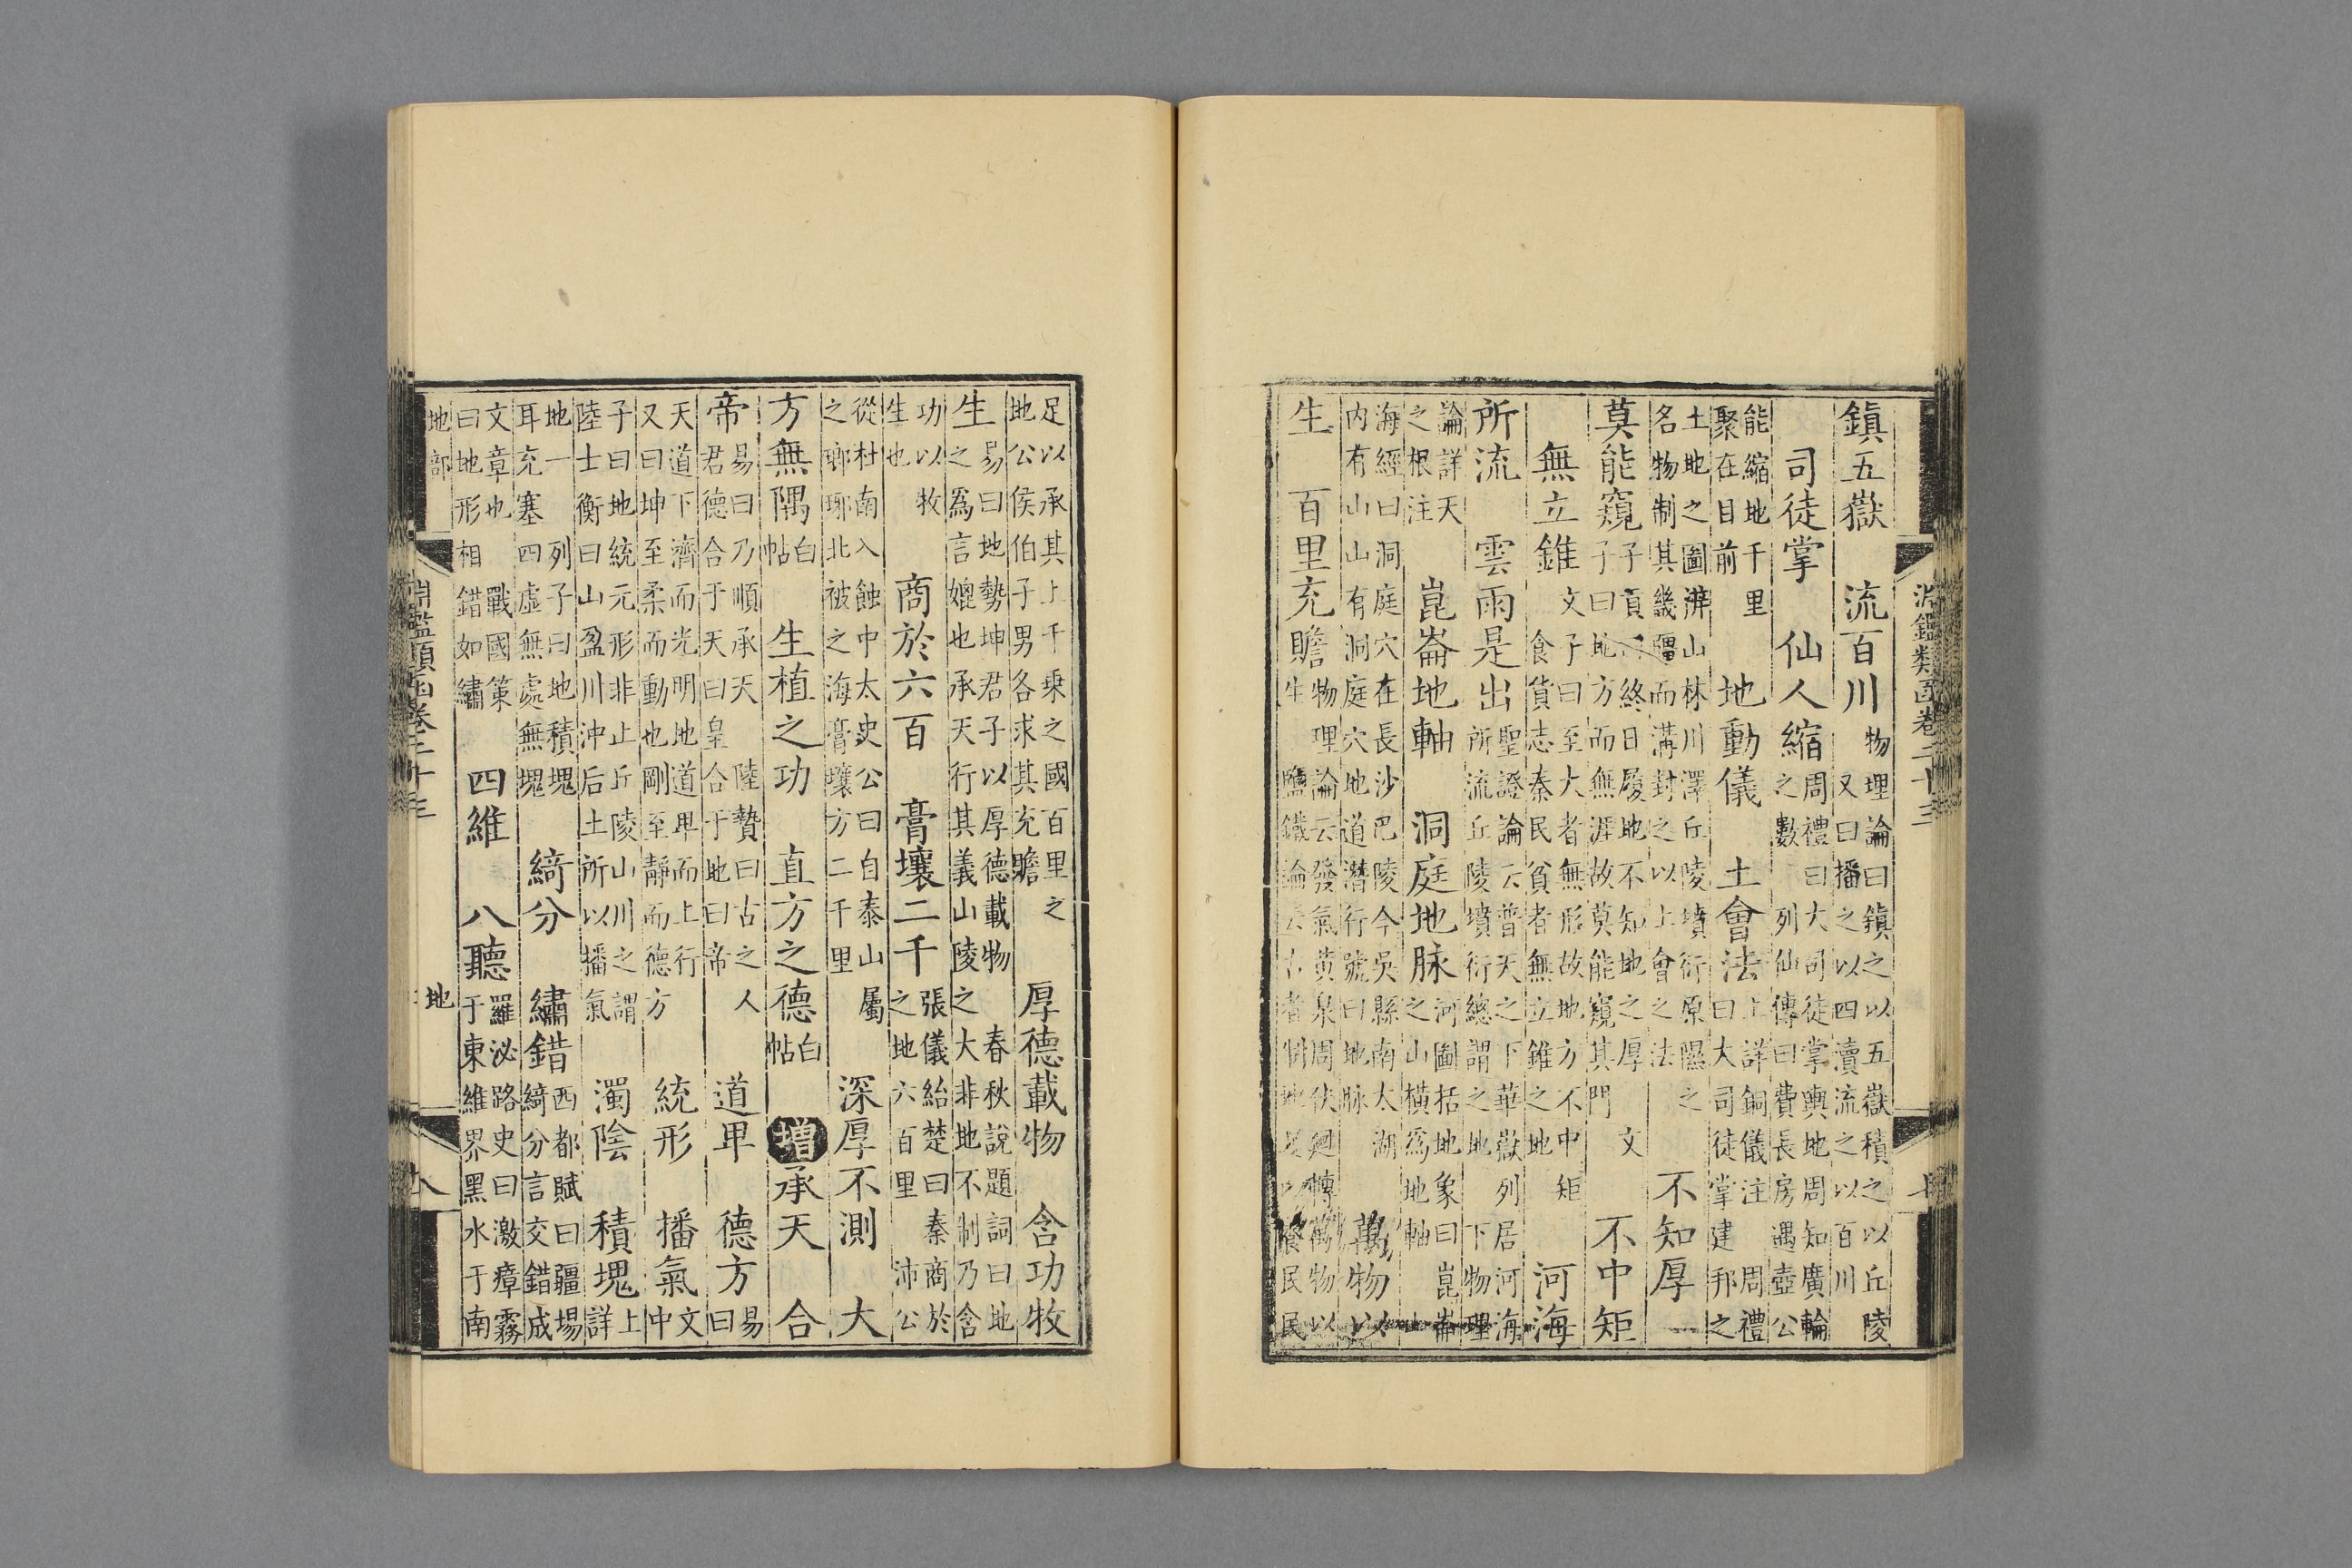 淵鑑類函卷二十三 七
鎮五嶽 流百川 物理論曰鎮之以五嶽積之以丘陵 又曰播之以四瀆流之以百川
司徒掌 仙人縮 周禮曰大司徒掌輿地周知廣輪之數 列仙傳曰費長房遇壺公
能縮地千里聚在目前 地動儀 土會法 上詳銅儀注 周禮曰大司徒掌建邦之
土地之圖辨山林川澤丘陵墳衍原隰之名物制其幾疆而溝封之以土會之法 不知厚 一
莫能窺 子貢曰終日履地不知地之厚 文子曰地方而無涯故莫能窺其門 不中矩
無立錐 文子曰至大者無形故地方不中矩 食貨志秦民貧者無立錐之地 河海
所流 雲雨是出 聖證論云普天之下華嶽列居河海所流丘陵墳衍總謂之地 下物理
論詳天之根注 崑崙地軸 洞庭地脉 河圖括地象曰崑崙之山橫爲地軸 山
海經曰洞庭穴在長沙巴陵今吳縣南太湖內有山山有洞庭穴地道潛行號曰地脉 萬物以
生 百里充贍 物理論云發氣黃泉周伏廻轉萬物以生 鹽鐵論云古者制地 養民民
足以承其上千乘之國百里之地公侯伯子男各求其充贍 厚德載物 含功牧
生 易曰地勢坤君子以厚德載物 春秋說題詞曰地之爲言媲也承天行其義山陵之大非地不制乃含
功以牧生也 商於六百 膏壤二千 張儀紿楚曰秦商於之地六百里 沛公
從杜南入蝕中太史公曰自泰山屬之瑯琊北被之海膏壤方二千里 深厚不測 大
方無隅 白帖 生植之功 直方之德 白帖 增 承天 合
帝 易曰乃順承天 陸贄曰古之人君德合于天曰皇合于地曰帝 道卑 德方 易曰
天道下濟而光明地道卑而上行又曰坤至柔而動也剛至靜而德方 統形 播氣 文中
子曰地統元形非止丘陵山川之謂 陸士衡曰山盈川沖后土所以播氣 濁陰 積塊 上詳
地一 列子曰地積塊耳充塞四虛無處無塊 綺分 繡錯 西都賦曰疆場綺分言交錯成
文章也 戰國策曰地形相錯如繡 四維 八聽 羅泌路史曰激瘴霧于東維界黑水于南
地部 淵鑑類函卷二十三 地 八